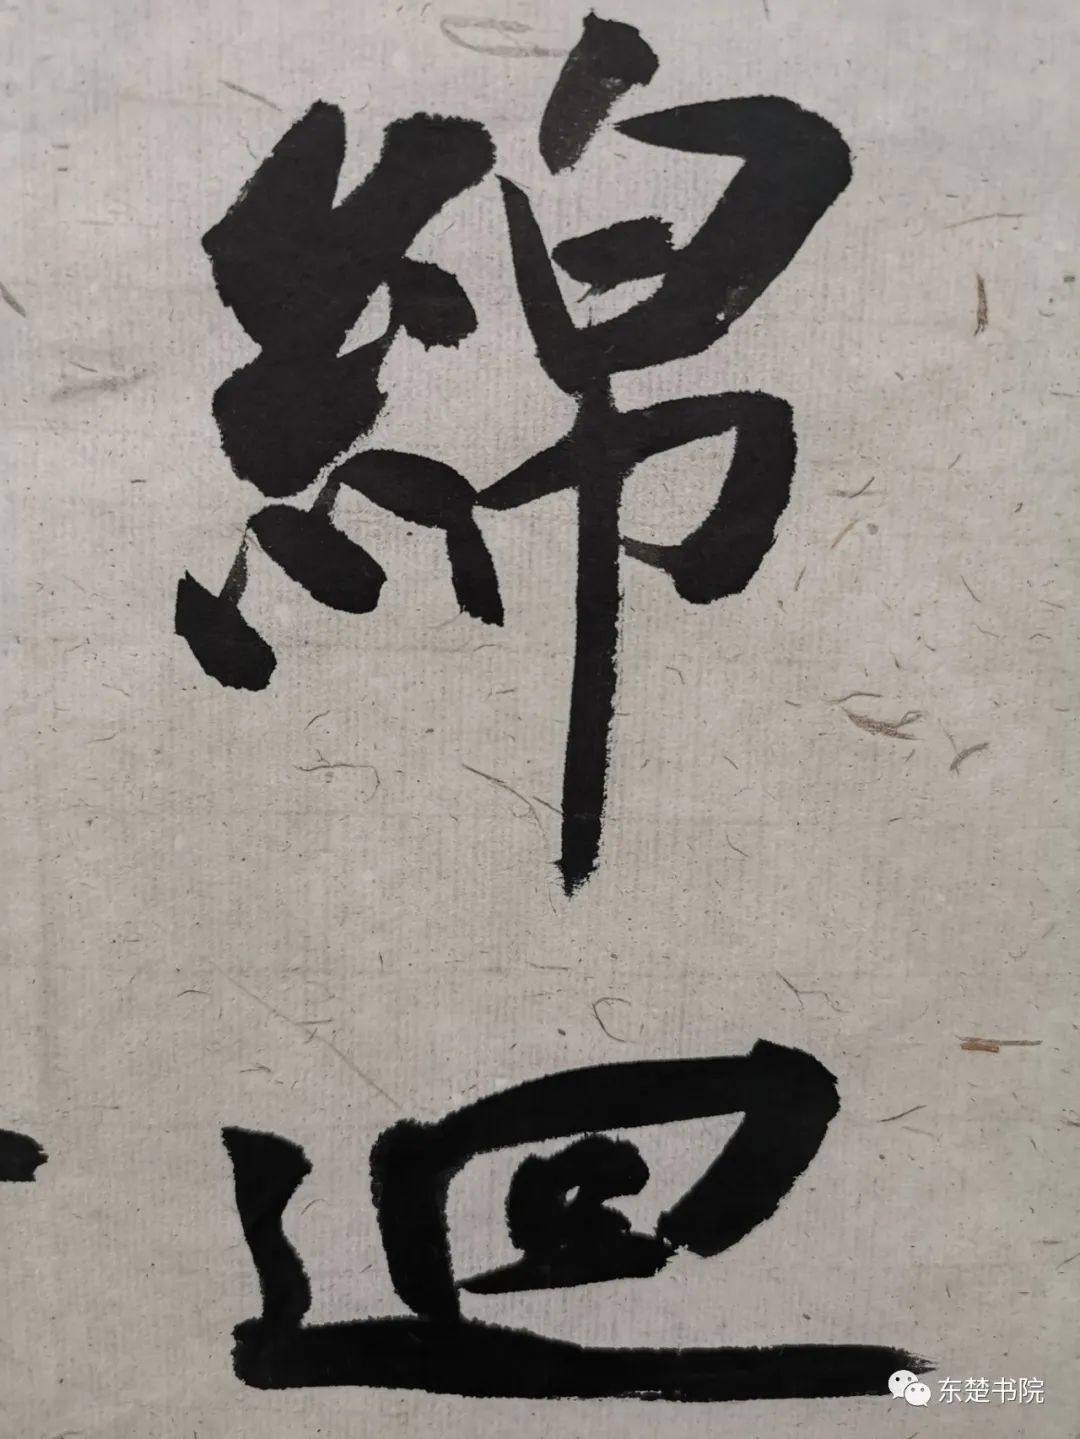 綿
迴
东楚书院